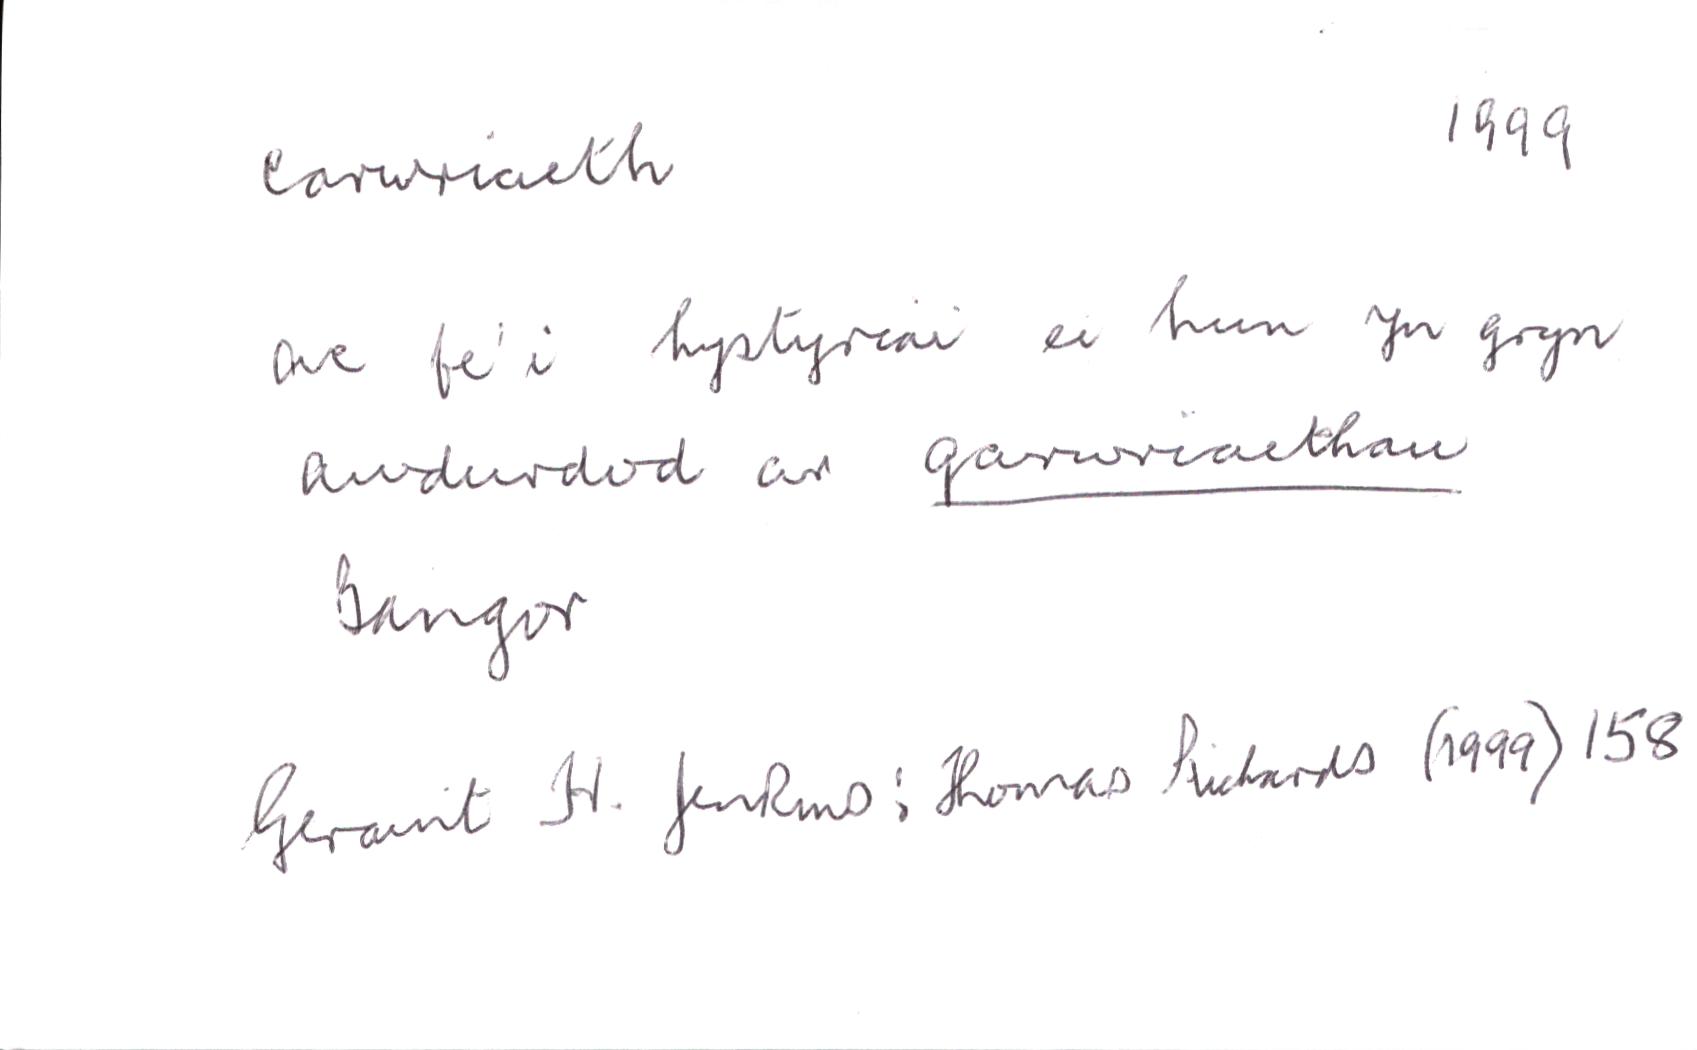 carwriaeth 1999
ac fe'i hystyriai ei hun yn gryn
awdurdod ar garwriaethau
Bangor
Geraint H. Jenkins: Thomas Richards (1999) 158